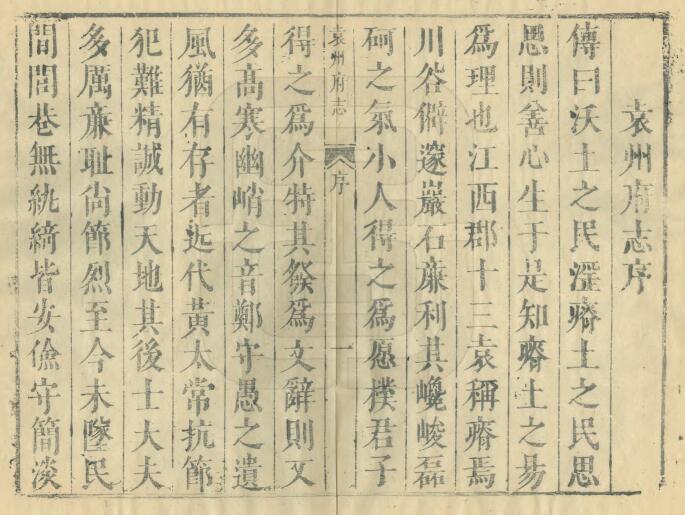 袁州府志序
傳曰沃土之民淫瘠土之民思
思則善心生于是知瘠土之易
爲理也江西郡十三袁稱瘠焉
川谷僻邃巖石亷利其巉峻磊
砢之氣小人得之爲愿樸君子
袁州府志
序
一
得之爲介特其發爲文辭則又
多高寒幽峭之音鄭守愚之遺
風猶有存者近代黃太常抗節
犯難精誠動天地其後士大夫
多厲亷耻尚節烈至今未墜民
間閭巷無紈綺皆安儉守簡淡